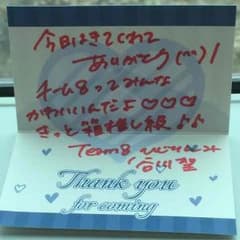 今日はきてくれて
ありがとう(^^)!
チーム8ってみんな
かわいいんだよ♡♡♡
きっと箱推し級♪♪
Team8
Thank you
for coming